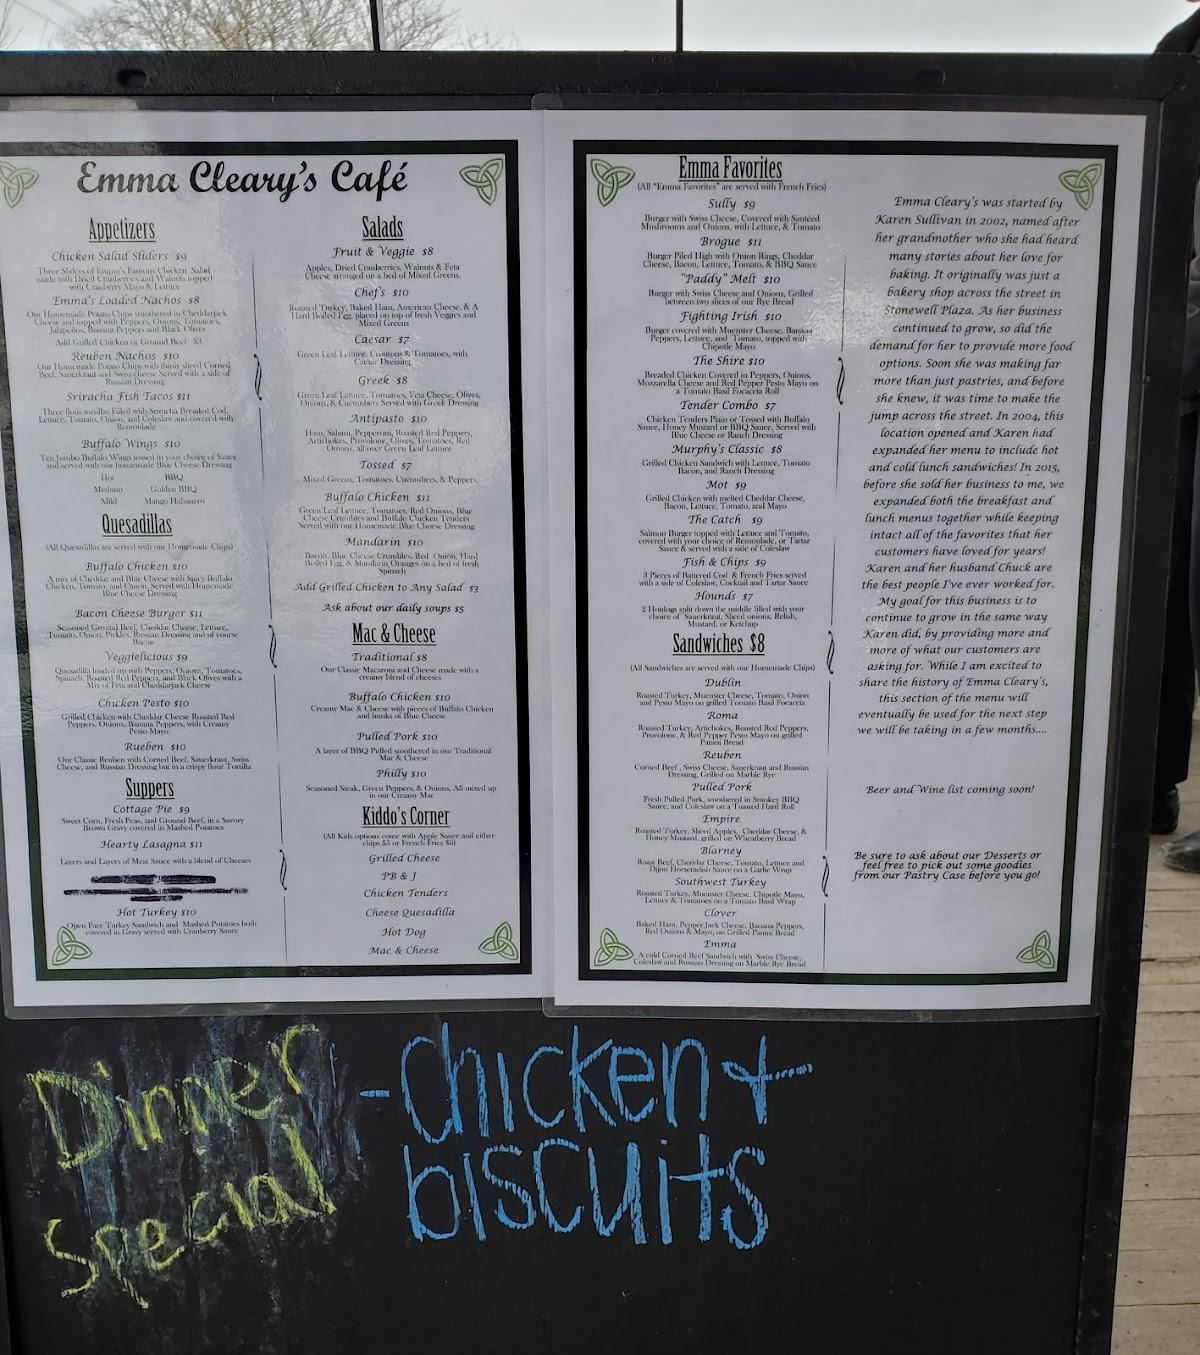 Emma Cleary's Café
Appetizers
Chicken Salad Sliders $9
Three Sliders of Emma's Famous Chicken Salad
made with Dried Cranberries and Walnuts topped
with Cranberry Mayo & Lettuce
Emma's Loaded Nachos $8
Our Homemade Potato Chips smothered in Cheddarjack
Cheese and topped with Peppers, Onions, Tomatoes,
Jalapeños, Banana Peppers and Black Olives
Add Grilled Chicken or Ground Beef $3
Reuben Nachos $10
Our Homemade Potato Chips with thinly sliced Corned
Beef, Sauerkraut and Swiss cheese Served with a side of
Russian Dressing
Sriracha Fish Tacos $11
Three flour tortillas Filled with Sriracha Breaded Cod,
Lettuce, Tomato, Onion, and Coleslaw and covered with
Remoulade
Buffalo Wings $10
Ten Jumbo Buffalo Wings tossed in your choice of Sauce
and served with our homemade Blue Cheese Dressing
Hot BBQ
Medium Golden BBQ
Mild Mango Habanero
Quesadillas
(All Quesadillas are served with our Homemade Chips)
Buffalo Chicken $10
A mix of Cheddar and Blue Cheese with Spicy Buffalo
Chicken, Tomato, and Onion, Served with Homemade
Blue Cheese Dressing
Bacon Cheese Burger $11
Seasoned Ground Beef, Cheddar Cheese, Lettuce,
Tomato, Onion, Pickles, Russian Dressing and of course
Bacon
Veggielicious $9
Quesadilla loaded up with Peppers, Onions, Tomatoes,
Spinach, Roasted Red Peppers, and Black Olives with a
Mix of Feta and Cheddarjack Cheese
Chicken Pesto $10
Grilled Chicken with Cheddar Cheese Roasted Red
Peppers, Onions, Banana Peppers, with Creamy
Pesto Mayo
Rueben $10
Our Classic Reuben with Corned Beef, Sauerkraut, Swiss
Cheese, and Russian Dressing but in a crispy flour Tortilla
Suppers
Cottage Pie $9
Sweet Corn, Fresh Peas, and Ground Beef, in a Savory
Brown Gravy covered in Mashed Potatoes
Hearty Lasagna $11
Layers and Layers of Meat Sauce with a blend of Cheeses
Hot Turkey $10
Open Face Turkey Sandwich and Mashed Potatoes both
covered in Gravy served with Cranberry Sauce
Salads
Fruit & Veggie $8
Apples, Dried Cranberries, Walnuts & Feta
Cheese arranged on a bed of Mixed Greens.
Chef's $10
Roasted Turkey, Baked Ham, American Cheese, & A
Hard Boiled Egg, placed on top of fresh Veggies and
Mixed Greens
Caesar $7
Green Leaf Lettuce, Croutons & Tomatoes, with
Caesar Dressing
Greek $8
Green Leaf Lettuce, Tomatoes, Feta Cheese, Olives,
Onions, & Cucumbers Served with Greek Dressing
Antipasto $10
Ham, Salami, Pepperoni, Roasted Red Peppers,
Artichokes, Provolone, Olives, Tomatoes, Red
Onions, all over Green Leaf Lettuce
Tossed $7
Mixed Greens, Tomatoes, Cucumbers, & Peppers,
Buffalo Chicken $11
Green Leaf Lettuce, Tomatoes, Red Onions, Blue
Cheese Crumbles and Buffalo Chicken Tenders
Served with our Homemade Blue Cheese Dressing
Mandarin $10
Bacon, Blue Cheese Crumbles, Red Onion, Hard
Boiled Egg, & Mandarin Oranges on a bed of fresh
Spinach
Add Grilled Chicken to Any Salad $3
Ask about our daily soups $5
Mac & Cheese
Traditional $8
Our Classic Macaroni and Cheese made with a
creamy blend of cheeses
Buffalo Chicken $10
Creamy Mac & Cheese with pieces of Buffalo Chicken
and hunks of Blue Cheese
Pulled Pork $10
A layer of BBQ Pulled smothered in our Traditional
Mac & Cheese
Philly $10
Seasoned Steak, Green Peppers, & Onions, All mixed up
in our Creamy Mac
Kiddo's Corner
(All Kids options come with Apple Sauce and either
chips $5 or French Fries $6)
Grilled Cheese
PB & J
Chicken Tenders
Cheese Quesadilla
Hot Dog
Mac & Cheese
Emma Favorites
(All "Emma Favorites" are served with French Fries)
Sully $9
Burger with Swiss Cheese, Covered with Sautéed
Mushrooms and Onions, with Lettuce, & Tomato
Brogue $11
Burger Piled High with Onion Rings, Cheddar
Cheese, Bacon, Lettuce, Tomato, & BBQ Sauce
"Paddy" Melt $10
Burger with Swiss Cheese and Onions, Grilled
between two slices of our Rye Bread
Fighting Irish $10
Burger covered with Muenster Cheese, Banana
Peppers, Lettuce, and Tomato, topped with
Chipotle Mayo
The Shire $10
Breaded Chicken Covered in Peppers, Onions,
Mozzarella Cheese and Red Pepper Pesto Mayo on
a Tomato Basil Focaccia Roll
Tender Combo $7
Chicken Tenders Plain or Tossed with Buffalo
Sauce, Honey Mustard or BBQ Sauce, Served with
Blue Cheese or Ranch Dressing
Murphy's Classic $8
Grilled Chicken Sandwich with Lettuce, Tomato
Bacon, and Ranch Dressing
Mot $9
Grilled Chicken with melted Cheddar Cheese,
Bacon, Lettuce, Tomato, and Mayo
The Catch $9
Salmon Burger topped with Lettuce and Tomato,
covered with your choice of Remoulade, or Tartar
Sauce & served with a side of Coleslaw
Fish & Chips $9
3 Pieces of Battered Cod & French Fries served
with a side of Coleslaw, Cocktail and Tartar Sauce
Hounds $7
2 Hotdogs split down the middle filled with your
choice of Sauerkraut, Sliced onions, Relish,
Mustard, or Ketchup
Sandwiches $8
(All Sandwiches are served with our Homemade Chips)
Dublin
Roasted Turkey, Muenster Cheese, Tomato, Onion
and Pesto Mayo on grilled Tomato Basil Focaccia
Roma
Roasted Turkey, Artichokes, Roasted Red Peppers,
Provolone, & Red Pepper Pesto Mayo on grilled
Panini Bread
Reuben
Corned Beef, Swiss Cheese, Sauerkraut and Russian
Dressing, Grilled on Marble Rye
Pulled Pork
Fresh Pulled Pork, smothered in Smokey BBQ
Sauce, and Coleslaw on a Toasted Hard Roll
Empire
Roasted Turkey, Sliced Apples, Cheddar Cheese, &
Honey Mustard, grilled on Wheatberry Bread
Blarney
Roast Beef, Cheddar Cheese, Tomato, Lettuce and
Dijon Horseradish Sauce on a Garlic Wrap
Southwest Turkey
Roasted Turkey, Muenster Cheese, Chipotle Mayo,
Lettuce & Tomatoes on a Tomato Basil Wrap
Clover
Baked Ham, Pepper Jack Cheese, Banana Peppers,
Red Onions & Mayo, on Grilled Panini Bread
Emma
A cold Corned Beef Sandwich with Swiss Cheese,
Coleslaw and Russian Dressing on Marble Rye Bread
Emma Cleary's was started by
Karen Sullivan in 2002, named after
her grandmother who she had heard
many stories about her love for
baking. It originally was just a
bakery shop across the street in
Stonewell Plaza. As her business
continued to grow, so did the
demand for her to provide more food
options. Soon she was making far
more than just pastries, and before
she knew, it was time to make the
jump across the street. In 2004, this
location opened and Karen had
expanded her menu to include hot
and cold lunch sandwiches! In 2015,
before she sold her business to me, we
expanded both the breakfast and
lunch menus together while keeping
intact all of the favorites that her
customers have loved for years!
Karen and her husband Chuck are
the best people I've ever worked for.
My goal for this business is to
continue to grow in the same way
Karen did, by providing more and
more of what our customers are
asking for. While I am excited to
share the history of Emma Cleary's,
this section of the menu will
eventually be used for the next step
we will be taking in a few months....
Beer and Wine list coming soon!
Be sure to ask about our Desserts or
feel free to pick out some goodies
from our Pastry Case before you go!
Dinner Special
- Chicken +
biscuits